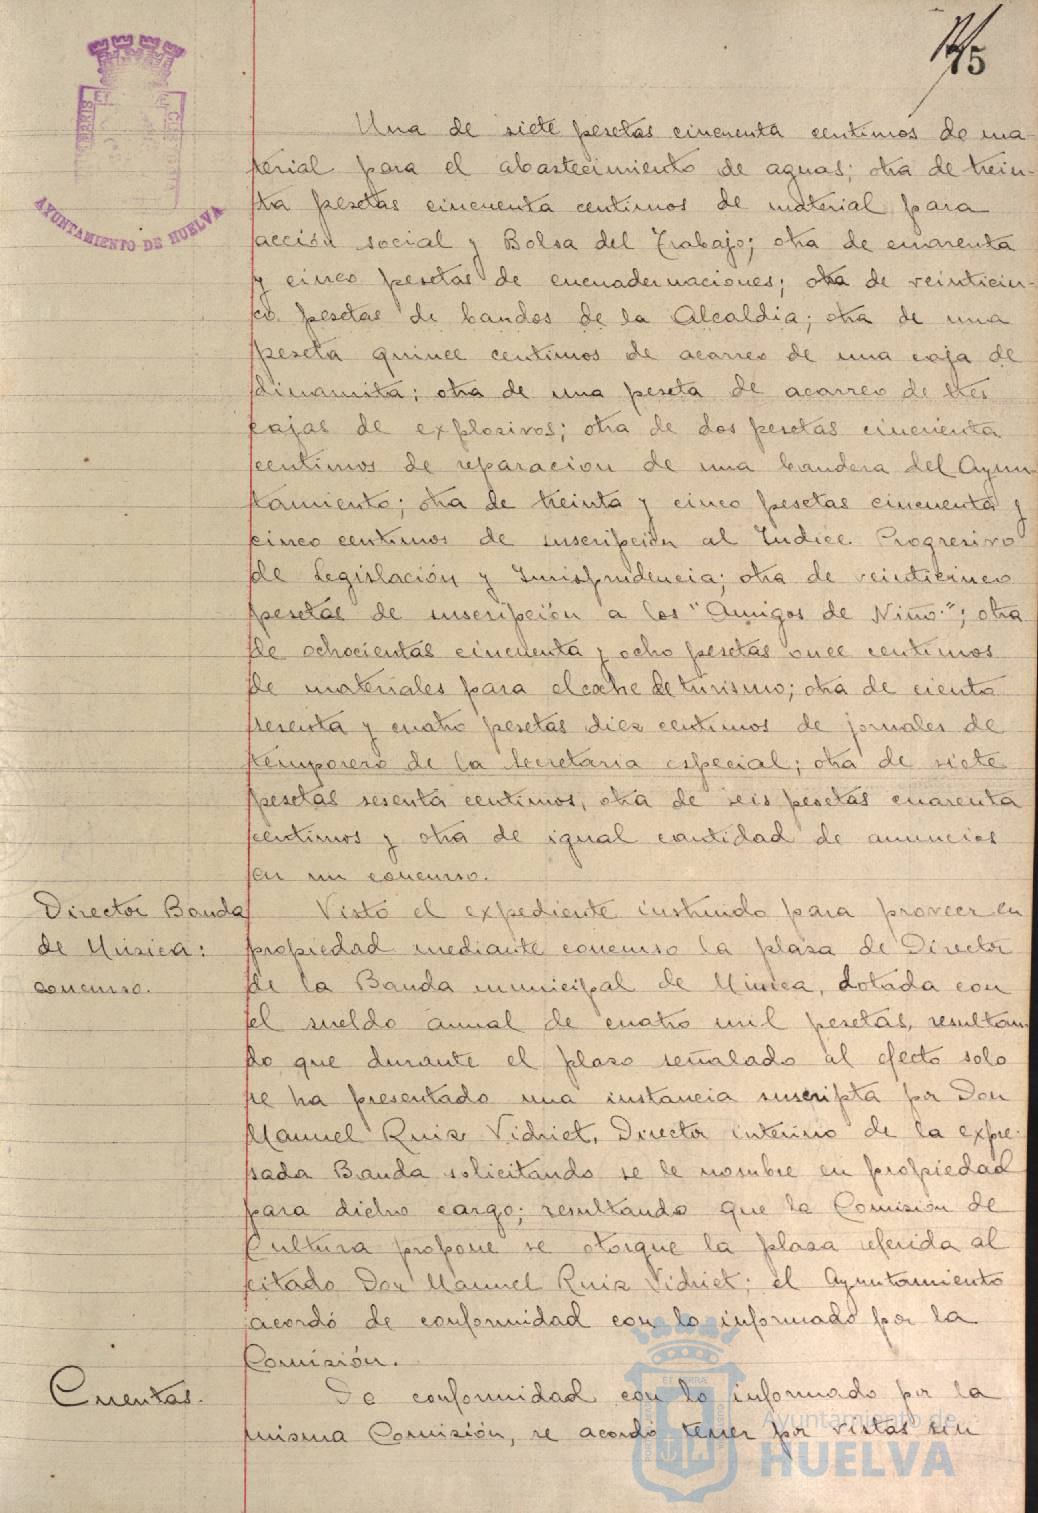 75
AYUNTAMIENTO DE HUELVA
Una de siete pesetas cincuenta centimos de ma-
terial para el abastecimiento de aguas; otra de trein-
ta pesetas cincuenta centimos de material para
acción social y Bolsa del Trabajo; otra de cuarenta
y cinco pesetas de encuadernaciones; otra de veinticin-
co pesetas de bandos de la Alcaldia; otra de una
peseta quince centimos de acarreo de una caja de
dinamita; otra de una peseta de acarreo de tres
cajas de explosivos; otra de dos pesetas cincuenta
centimos de reparacion de una bandera del Ayun-
tamiento; otra de treinta y cinco pesetas cincuenta y
cinco centimos de suscripción al Indice Progresivo
de Legislación y Jurisprudencia; otra de veinticinco
pesetas de suscripción a los "Amigos de Niño"; otra
de ochocientas cincuenta y ocho pesetas once centimos
de materiales para el coche de turismo; otra de ciento
sesenta y cuatro pesetas diez centimos de jornales de
temporero de la Secretaria especial; otra de siete
pesetas sesenta centimos, otra de seis pesetas cuarenta
centimos y otra de igual cantidad de anuncios
en un concurso.
Director Banda
de Música:
concurso.
Visto el expediente instruido para proveer en
propiedad mediante concurso la plaza de Director
de la Banda municipal de Música, dotada con
el sueldo anual de cuatro mil pesetas, resultan-
do que durante el plazo señalado al efecto solo
se ha presentado una instancia suscripta por Don
Manuel Ruiz Vidriet, Director interino de la expre-
sada Banda solicitando se le nombre en propiedad
para dicho cargo; resultando que la Comisión de
Cultura propone se otorgue la plaza referida al
citado Don Manuel Ruiz Vidriet; el Ayuntamiento
acordó de conformidad con lo informado por la
Comisión.
Cuentas.
De conformidad con lo informado por la
misma Comisión, se acordo tener por vistas sin
Ayuntamiento de
HUELVA